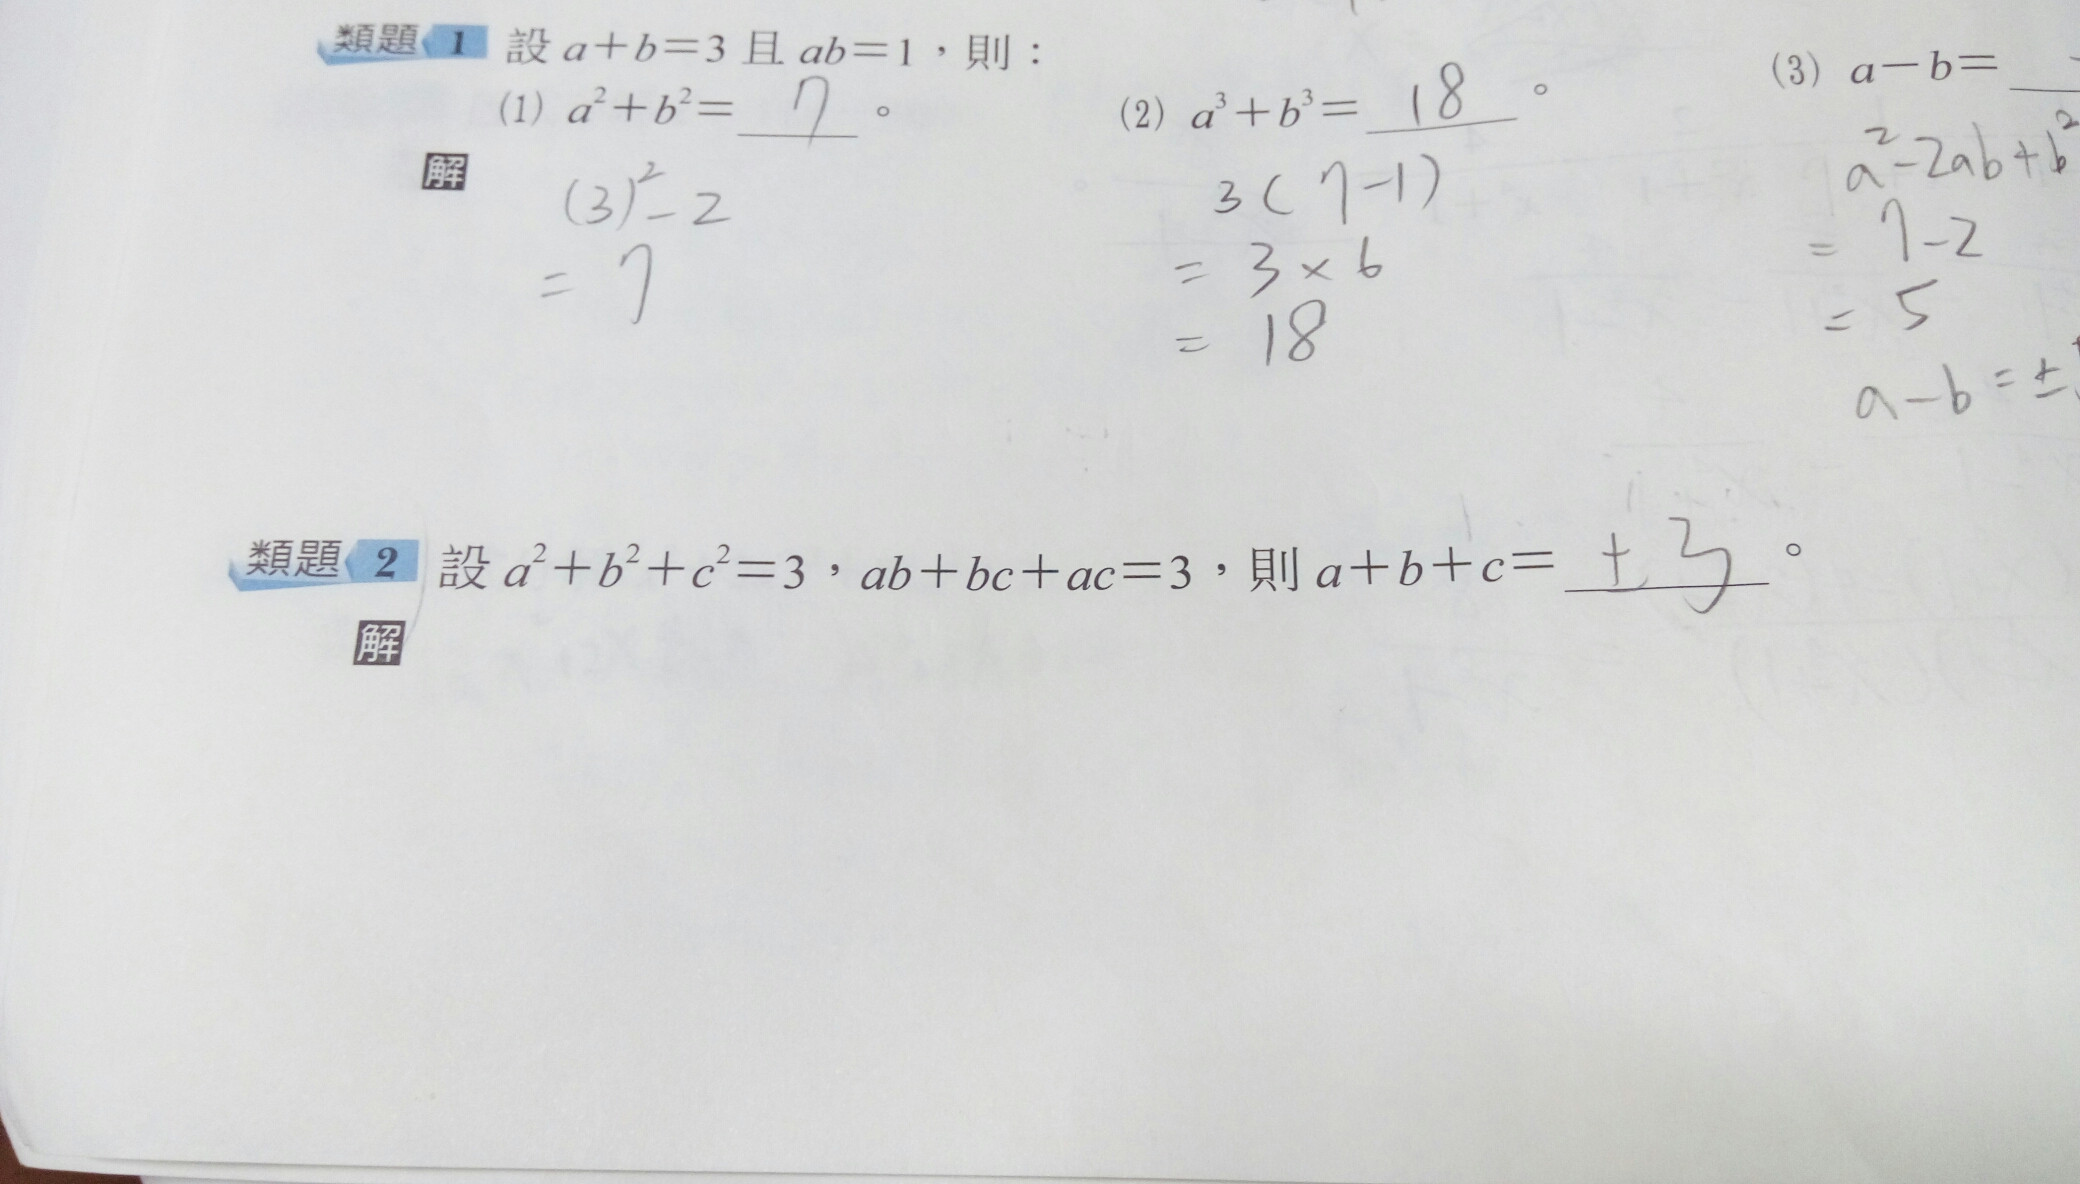 類題 1 設 a+b=3 且 ab=1，則：
(1) a²+b²= 7 。
(2) a³+b³= 18 。
(3) a-b=
解
(3)²-2
=7
3(7-1)
=3×6
=18
a²-2ab+b²
=7-2
=5
a-b=±
類題 2 設 a²+b²+c²=3，ab+bc+ac=3，則 a+b+c= ±3 。
解